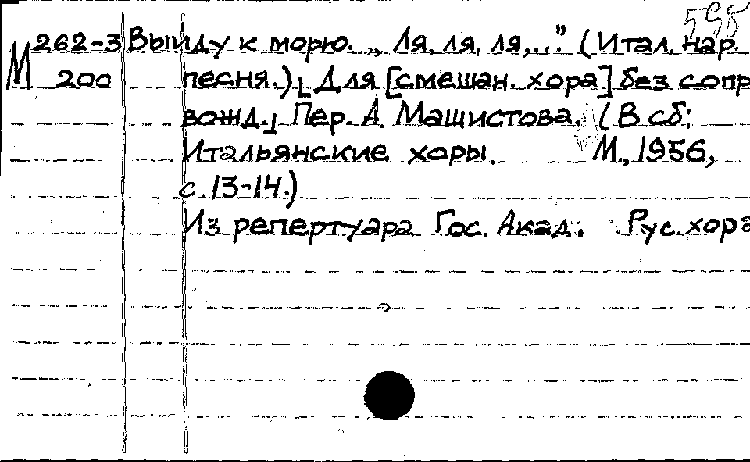 595
М 262-3 Выйду к морю. „Ля, ля, ля,..." (Итал. нар.
200 песня.) Для [смешан. хора] без сопр
вожд. Пер. А. Машистова. (В сб:
Итальянские хоры. М., 1956,
с. 13-14.)
Из репертуара Гос. Акад. Рус. хора